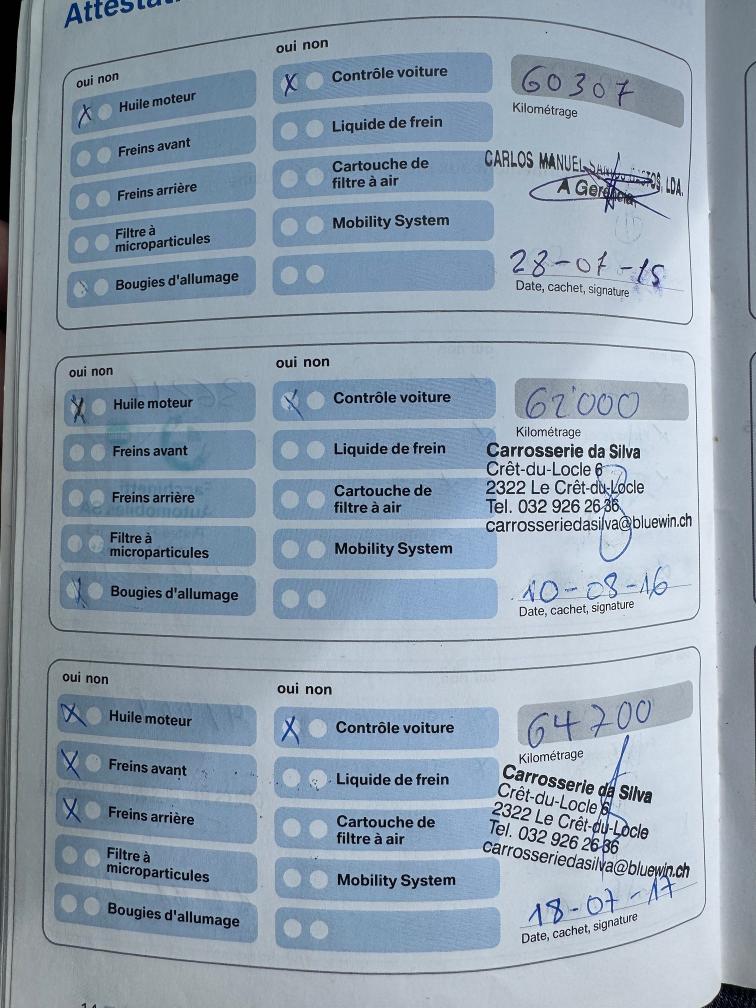 oui non
oui non
Huile moteur
Freins avant
Freins arrière
Filtre à
microparticules
Bougies d'allumage
Contrôle voiture
Liquide de frein
Cartouche de
filtre à air
Mobility System
60307
Kilométrage
CARLOS MANUEL LDA.
A Gerência
28-07-15
Date, cachet, signature
oui non
oui non
Huile moteur
Freins avant
Freins arrière
Filtre à
microparticules
Bougies d'allumage
Contrôle voiture
Liquide de frein
Cartouche de
filtre à air
Mobility System
62'000
Kilométrage
Carrosserie da Silva
Crêt-du-Locle 6
2322 Le Crêt-du-Locle
Tel. 032 926 26 36
carrosseriedasilva@bluewin.ch
10-08-16
Date, cachet, signature
oui non
oui non
Huile moteur
Freins avant
Freins arrière
Filtre à
microparticules
Bougies d'allumage
Contrôle voiture
Liquide de frein
Cartouche de
filtre à air
Mobility System
64700
Kilométrage
Carrosserie da Silva
Crêt-du-Locle 6
2322 Le Crêt-du-Locle
Tel. 032 926 26 36
carrosseriedasilva@bluewin.ch
18-07-17
Date, cachet, signature